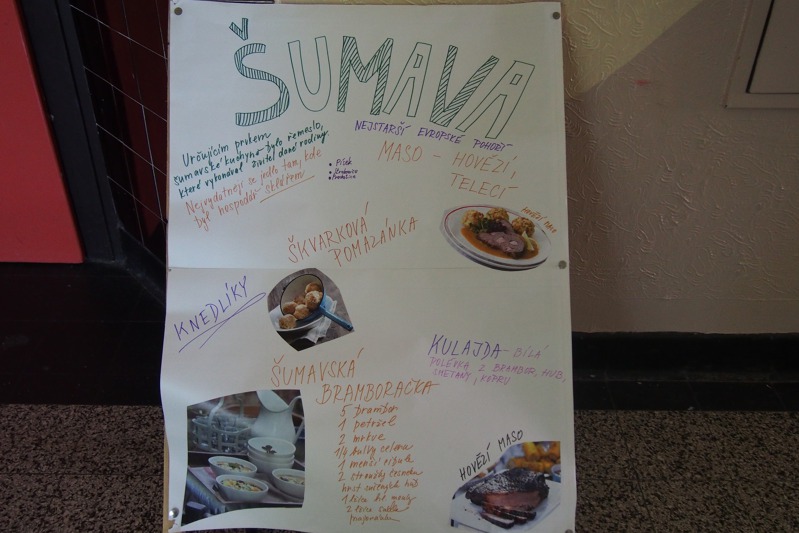 ŠUMAVA
Určujícím prvkem
šumavské kuchyně bylo řemeslo,
které vykonával živitel dané rodiny.
Nejvydatněji se jedlo tam, kde
byl hospodář sklářem.
NEJSTARŠÍ EVROPSKÉ POHOŘÍ
• Písek
• Strakonice
• Prachatice
MASO - HOVĚZÍ,
TELECÍ
HOVĚZÍ
ŠKVARKOVÁ
POMAZÁNKA
KNEDLÍKY
KULAJDA - BÍLÁ
POLÉVKA Z BRAMBOR, HUB,
SMETANY, KOPRU
ŠUMAVSKÁ
BRAMBORAČKA
5 brambor
1 petržel
2 mrkve
1/4 bulvy celeru
1 menší cibule
2 stroužky česneku
hrst sušených hub
1 lžíce hl. mouky
2 lžíce sádla
HOVĚZÍ MASO